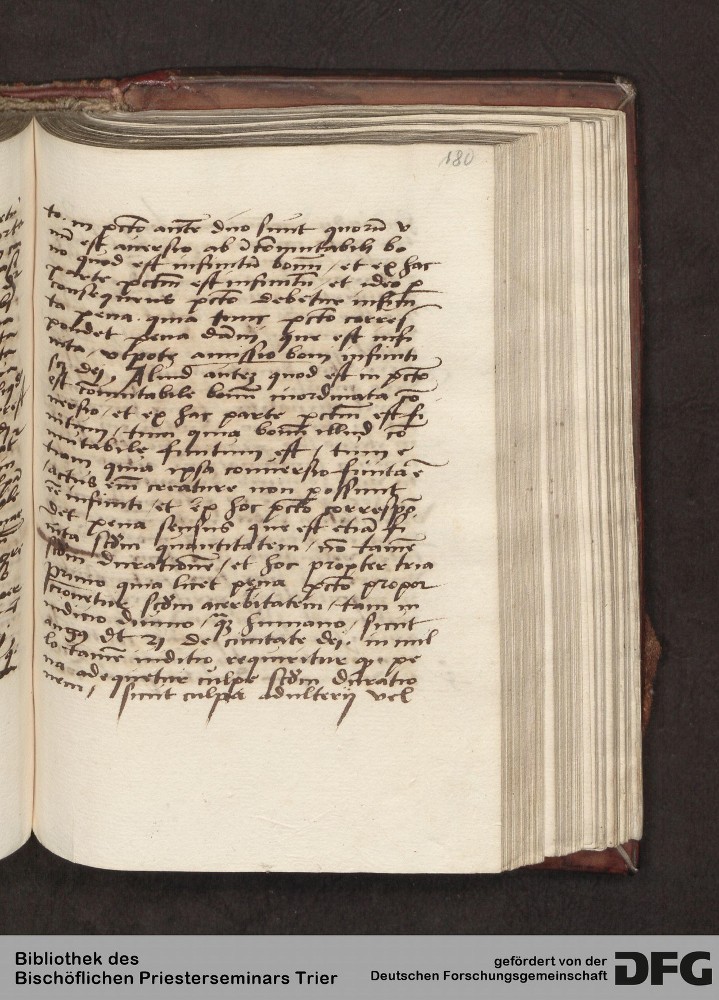 180
to. in pcto autē duo sunt quorū v
nū est auersio ab īcōmutabili bo
no quod est infinitū bonū / et ex hac
parte pctm est infinitū / et ideo p
consequens pcto debetur infini
ta pena. quia tunc pcto corres
pondet pena dāni, que est infi
nita / vtpote amissio boni infiniti
sꝫ dei. Aliud autē quod est in pcto
est cōmutabile bonū inordinata cō
uersio / et ex hac parte pctm est fi
nitum / tum quia bonū illud cō
mutabile finitum est / tum e
tiam quia ipsa conuersio finita ē
/ actus em̄ creature non possunt
ēē infiniti / et ex hoc pcto correspō
det pena sensus que est etiā fi
nita scdm quantitatem / nō tamē
scdm durationē / et hoc propter tria
Primo quia licet pena pcto propor
cionetur scdm acerbitatem / tam in
iudicio diuino / qꝫ humano / sicut
augꝯ dt 21 de ciuitate dei. in nul
lo tamē iuditio requiritur qꝫ pe
na adequetur culpe scdm duratio
nem / sicut culpa adulterij vel
Bibliothek des
Bischöflichen Priesterseminars Trier
gefördert von der
Deutschen Forschungsgemeinschaft
DFG